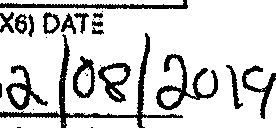 X6) DATE
2/08/2019